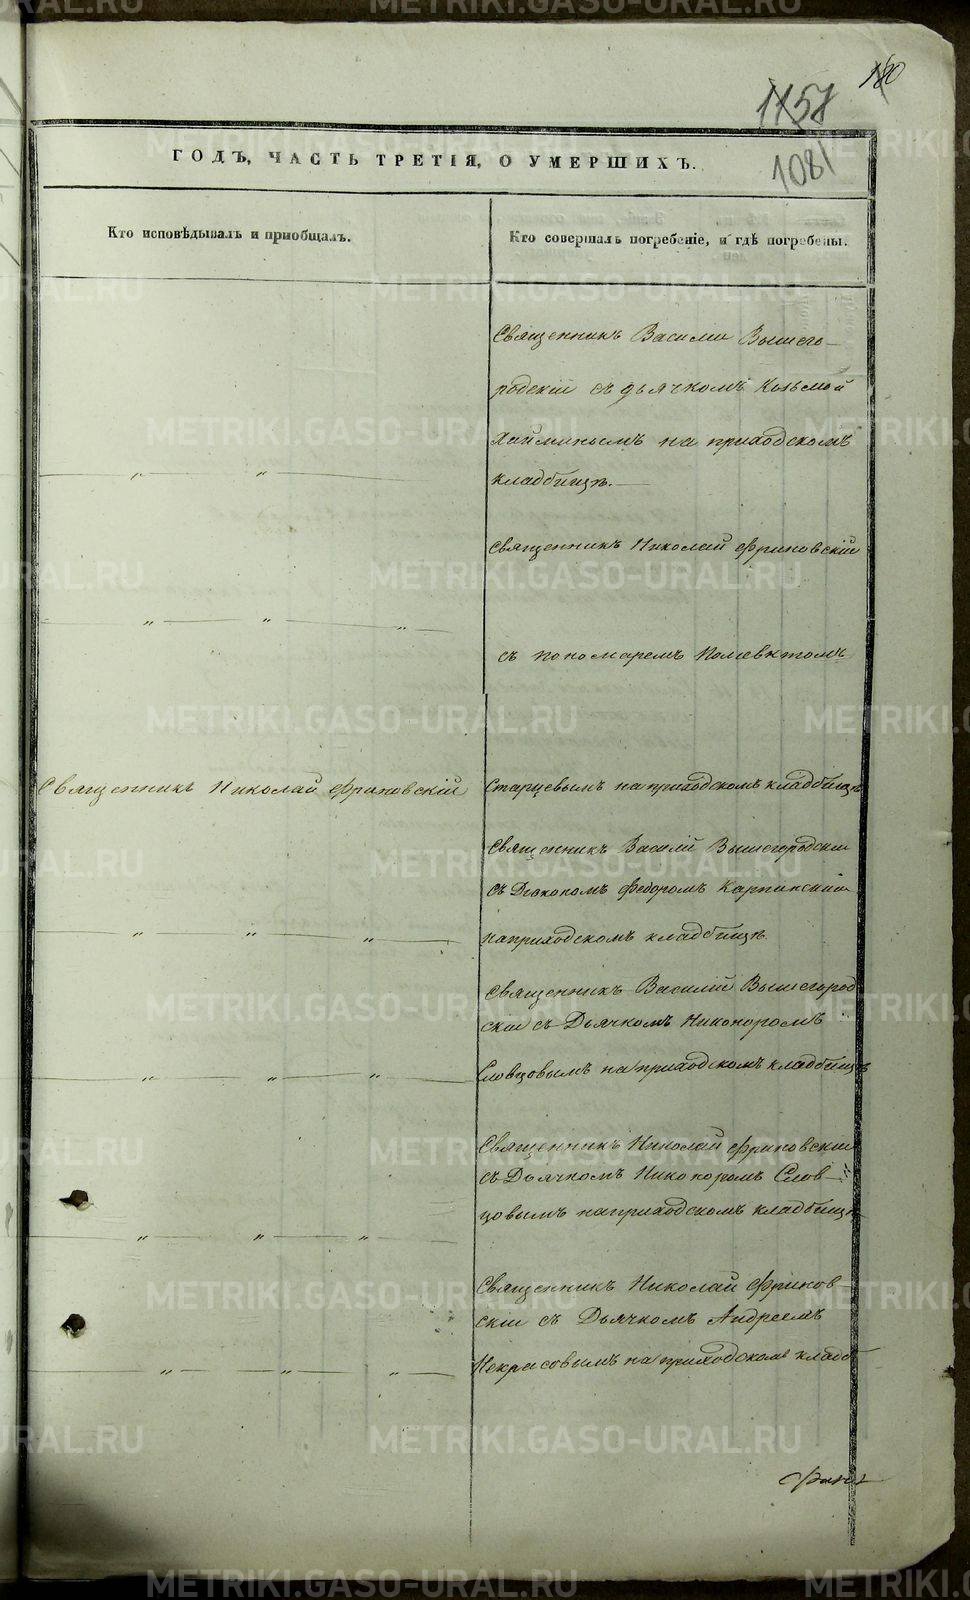 180
1157
1081
ГОДЪ, ЧАСТЬ ТРЕТІЯ, О УМЕРШИХЪ.
Кто исповѣдывалъ и приобщалъ.
Кто совершалъ погребеніе, и гдѣ погребены.
Священникъ Василии Вышего-
родскій съ дьячкомъ Козьмой
на приходскомъ
кладбищѣ.
Священникъ Николай Фриновскій
съ пономаремъ Полиевктомъ
Священникъ Николай Фриновскій
Старцевымъ на приходскомъ кладбищѣ
Священникъ Василій Вышегородскии
съ Дїакономъ Федоромъ Карпинскимъ
на приходскомъ кладбищѣ.
Священникъ Василій Вышегород
скіи съ Дьячкомъ Никоноромъ
Словцовымъ на приходскомъ кладбищѣ
Священникъ Николай Фриновскии
съ Дьячкомъ Никоноромъ Слов-
цовымъ на приходскомъ кладбищѣ
Священникъ Николай Фринов-
скіи съ Дьячкомъ Андреемъ
Некрасовымъ на приходскомъ кладб
METRIKI.GASO-URAL.RU